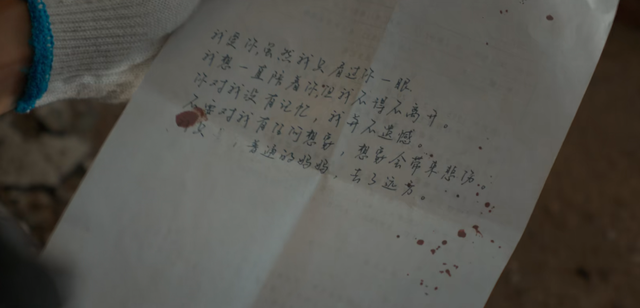 我爱你,虽然我只看过你一眼
我想一直陪着你,但我不得不离开。
你对我没有记忆,我并不遗憾。
不要对我有任何想象,想象会带来悲伤。
,普通的妈妈,去了远方。